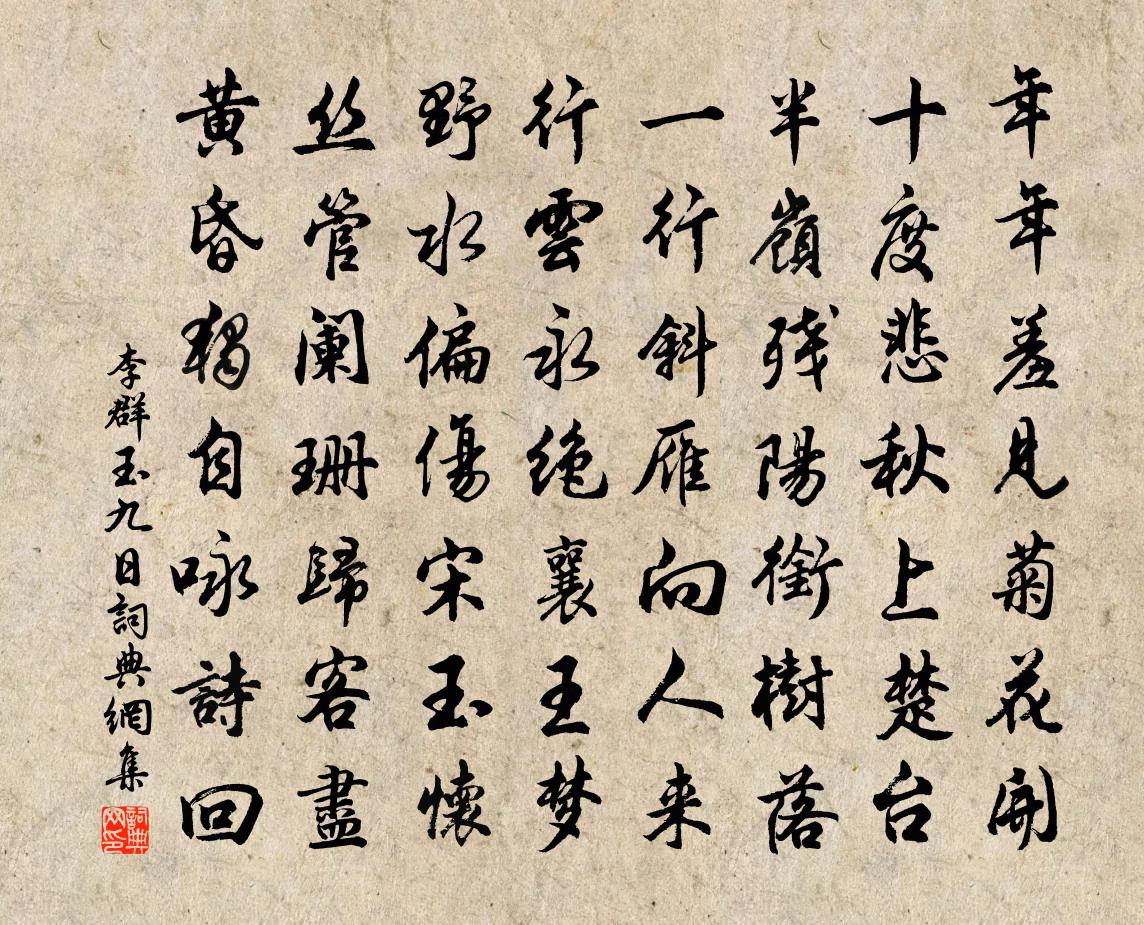 年年羞見菊花開
十度悲秋上楚台
半嶺残陽銜樹落
一行斜雁向人来
行雲永絶襄王梦
野水偏傷宋玉懷
丝管阑珊歸客盡
黄昏獨自咏詩回
李群玉九日詞典網集
詞典网印